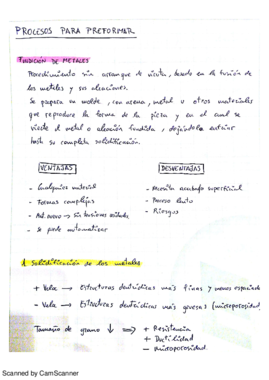 PROCESOS PARA PREFORMAR
FUNDICIÓN DE METALES
Procedimiento sin arranque de viruta, basado en la fusión de
los metales y sus aleaciones.
Se prepara un molde, con arena, metal u otros materiales
que reproduce la forma de la pieza y en el cual se
vierte el metal o aleación fundida, dejándola enfriar
hasta su completa solidificación.
VENTAJAS
DESVENTAJAS
- Cualquier material
- Necesita acabado superficial
- Formas complejas
- Proceso lento
- Mat. nuevo → sin tensiones
- Riesgos
- Se puede automatizar
Solidificación de los metales
+ Veloc → estructuras dendríticas más finas y menos
- Veloc → Estructuras dendríticas más gruesas (microporosidad)
Tamaño de grano ↓ ⟹ + Resistencia
+ Ductilidad
- microporosidad.
Scanned by CamScanner